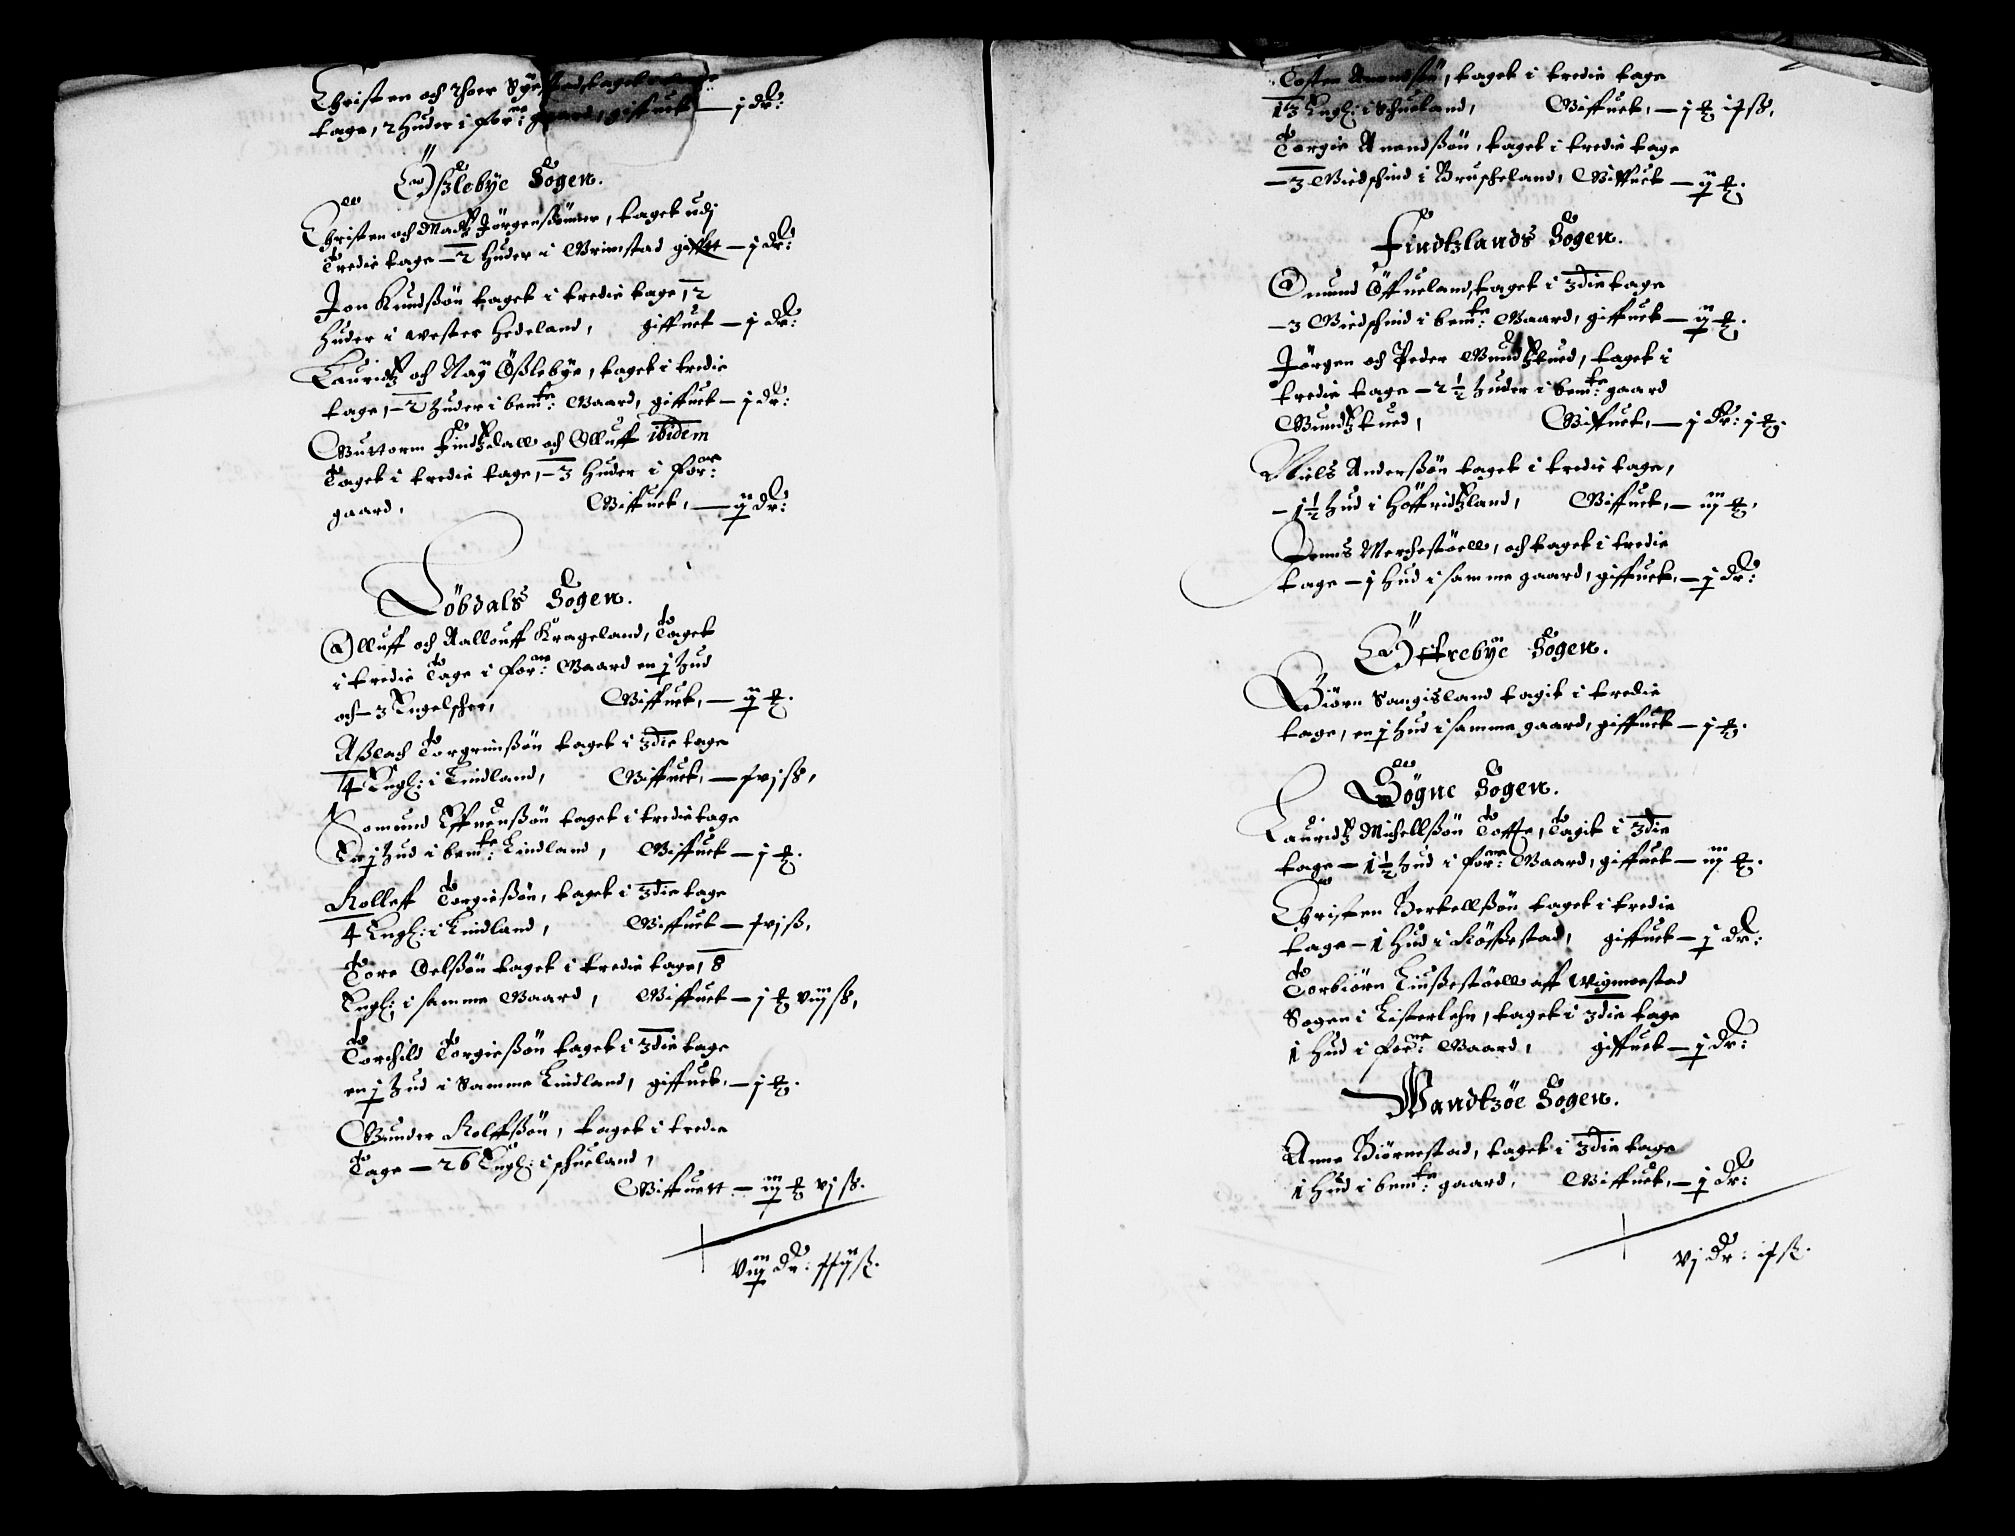 Christen och Thoer taget
tage, 2 huder i for:ne gaard, giffuet — j dr:
Øszlebye Sogen.
Christen och Madtz Jörgenssönner, taget udj
tredie tage — 2 huder i Grimstad gifft — j dr:
Jon Knudssön taget i tredie tage, 2
huder i wester Hedeland, giffuet — j dr:
Lauridtz och Aay Ößlebye, taget i tredie
tage, — 2 huder i bem:te Gaard, giffuet — j dr:
Guttorm Findtzdall och Olluff ibidem
taget i tredie tage, — 3 huder i for:ne
gaard, Giffuet, — ij dr:
Löbdals Sogen.
Olluff och Rallouff Krageland, taget
i tredie tage i for:ne Gaard en j hud
och — 3 Engelscher, Giffuet, — ij ℔.
Aßlach Torgrimßön taget i 3die tage
4 Engl: i Lindland, Giffuet, — xvj ß,
Somund Effuenßön taget i tredie tage
En j hud i bem:te Lindland, Giffuet — j ℔.
Rolleff Torgießön, taget i 3die tage
4 Engl: i Lindland, Giffuet — xvj ß,
Tore Oelßön taget i tredie tage, 8
Engl: i samme Gaard, Giffuet — j ℔ viij ß,
Torchild Torgießön taget i 3die tage
en j hud i Samme Lindland, giffuet, — j ℔.
Gunder Rolffßön, taget i tredie
Tage — 26 Engl: i schueland,
Giffuett — iiij ℔ vj ß.
viij dr: xxij ß.
Anendßön, taget i tredie tage
13 Engl: i Schueland, Giffuet, — j ℔ ix ß,
Torgie Anendßön, taget i tredie tage
— 3 Giedschind i Bruscheland, Giffuet — ij ℔.
Findtzlands Sogen.
Omund Öffueland, taget i 3die tage
— 3 Giedschind i bem:te Gaard, giffuet — ij ℔.
Jörgen och Peder Gundtztued, taget i
tredie tage — 2½ huder i bem:te gaard
Gundtztued, Giffuet, — j dr: j ℔.
Niels Anderßön taget i tredie tage,
— 1½ hud i Höffridtzland, Giffuet, — iij ℔,
Jenns Merchestöell, och taget i tredie
tage — j hud i samme gaard, giffuet, — j dr:
Öffrebye Sogen.
Biörn Sangisland tagit i tredie
tage, en j hud i samme gaard, giffuet — j ℔.
Sögne Sogen.
Lauridtz Michellßön Toffte, tagit i 3die
tage — 1½ hud i for:ne Gaard, giffuet — iij ℔.
Christen Bertellßön taget i tredie
tage — 1 hud i giffuet — j dr:
Torbiörn Linßestöell aff Wigmoestad
Sogen i Listerlehn, taget i 3die tage
1 hud i for:ne Gaard, giffuet — j dr:
Wandtzöe Sogen.
Anne Biörnestad, taget i 3die tage
1 hud i bem:te gaard, Giffuet, — j dr:
vj dr: ix ß.